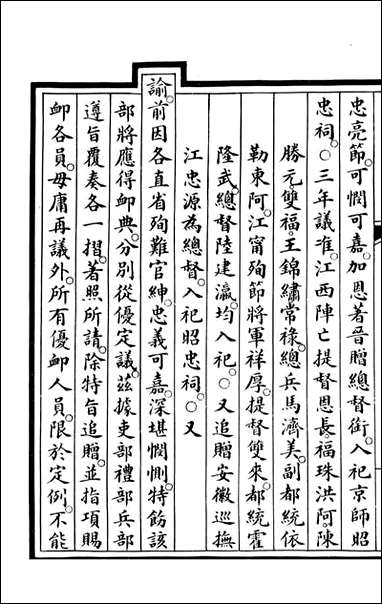 忠亮節。可憫可嘉。加恩著晉贈總督銜。入祀京師昭
忠祠。○三年議准。江西陣亡提督恩長。福珠洪阿。陳
勝元。雙福。王錦繡。常祿。總兵馬濟美。副都統依
勒東阿。江甯殉節將軍祥厚。提督雙來。都統霍
隆武。總督陸建瀛。均入祀。○又追贈安徽巡撫
江忠源為總督。入祀昭忠祠。○又
諭前因各直省殉難官紳。忠義可嘉。深堪憫惻。特飭該
部將應得卹典。分別從優定議。茲據吏部禮部兵部
遵旨覆奏各一摺。著照所請。除特旨追贈。並指項賜
卹各員。毋庸再議外。所有優卹人員。限於定例。不能